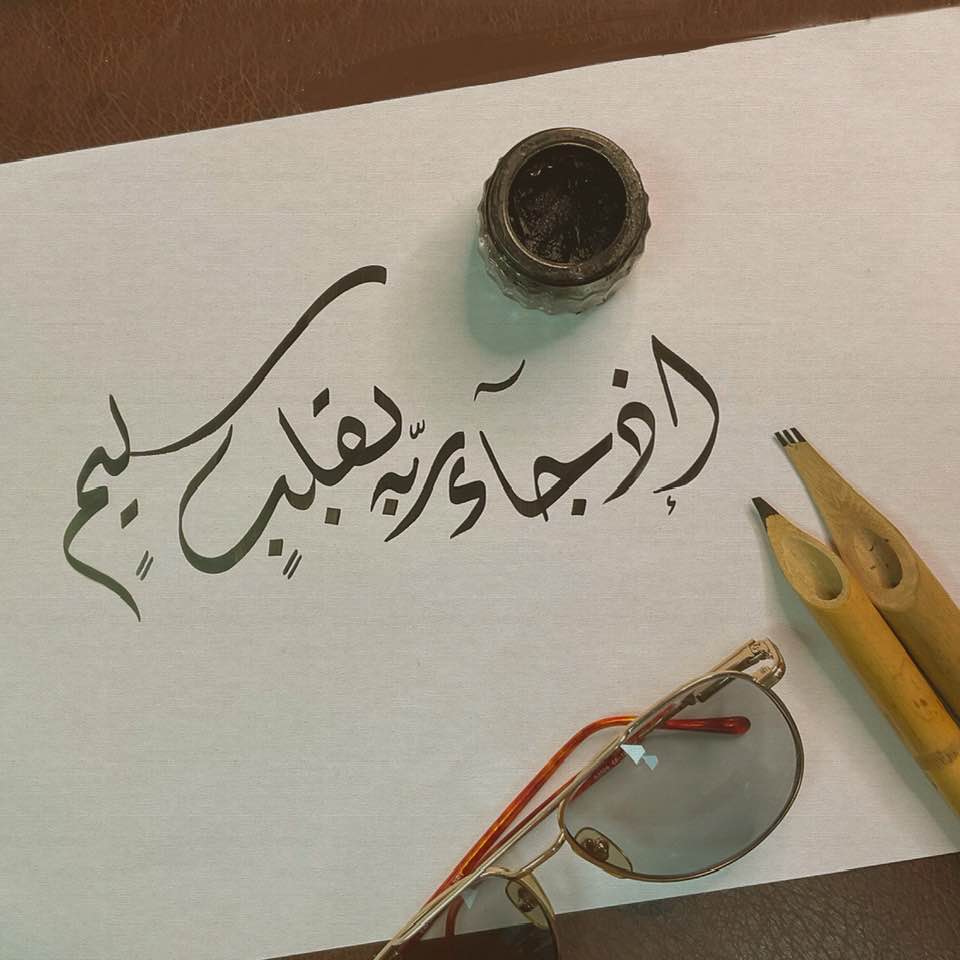 إذ جآء ربّه بقلبٍ سليمٍ